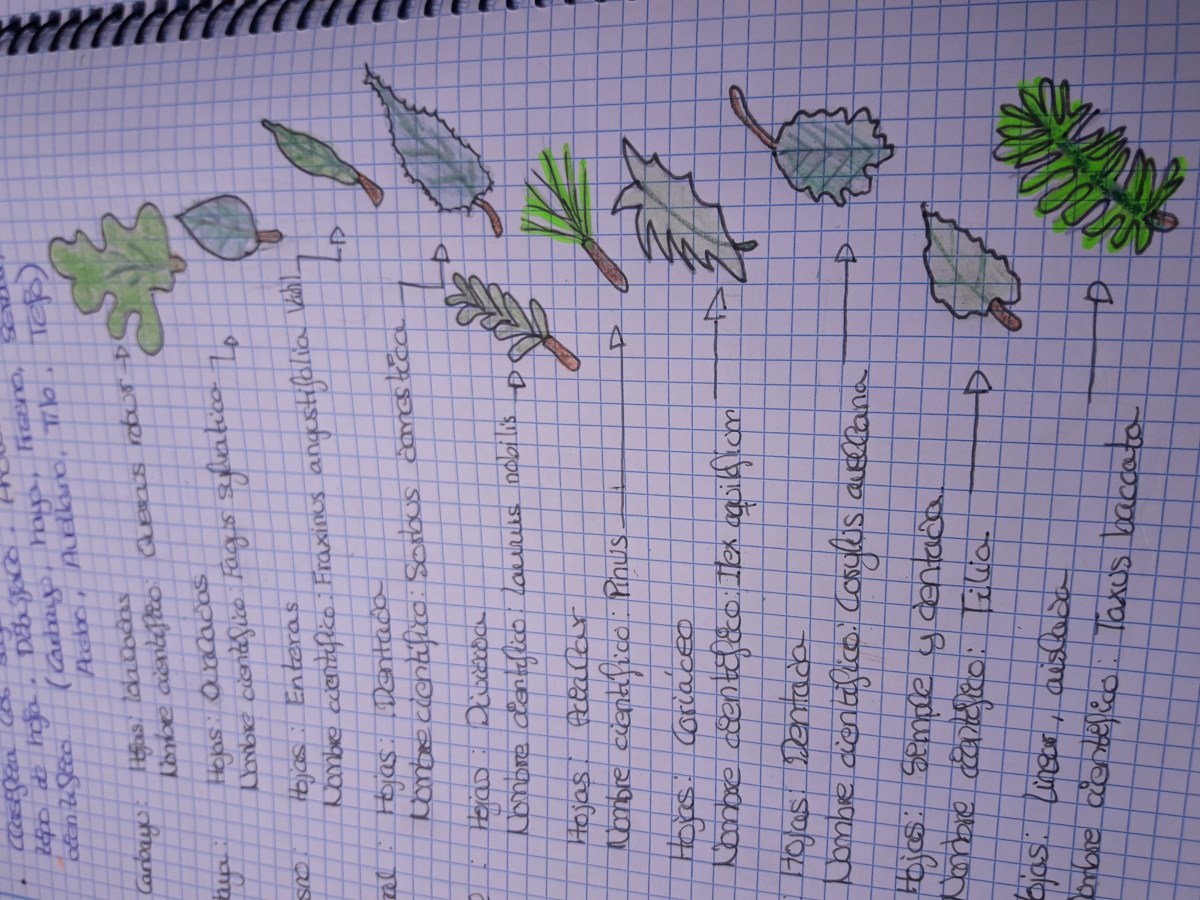 tipo de hoja. Dibujaco.
científico (Carbayo, haya, Fresno,
Acebo, Avellano, Tilo, Tejo)
Carbayo: Hojas: lobuladas
Nombre científico: Quercus robur
Hojas: Ovaladas
Nombre científico: Fagus sylvatica
Hojas: Enteras
Nombre científico: Fraxinus angustifolia Vahl
Hojas: Dentada
Nombre científico: Sorbus domestica
Hojas: Dividida
Nombre científico: Laurus nobilis
Hojas: Acicular
Nombre científico: Pinus
Hojas: Coriáceo
Nombre científico: Ilex aquifolium
Hojas: Dentada
Nombre científico: Corylis avellana
Hojas: Simple y dentada.
Nombre científico: Tilia.
Hojas: Linear, aislada
Nombre científico: Taxus baccata